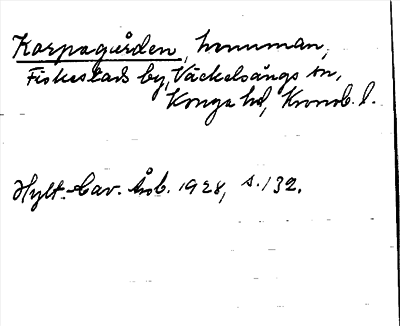 Korpagården, hemman,
Fiskestads by, Väckelsångs sn,
Konga hd, Kronob. l.
Hylt.-Cav. åsb. 1928, s. 132.